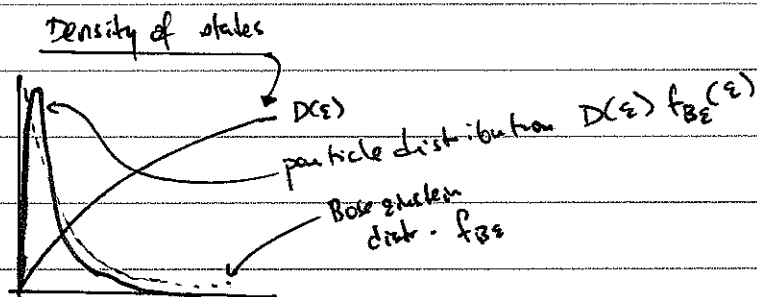 Density of states
D(ε)
particle distribution D(ε) f_BE(ε)
Bose einstein
distr. f_BE